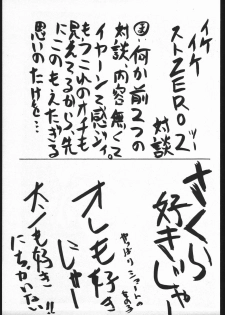 イケイケ
ストZERO2
対談
何か前2つの
対談、内容無くて
イヤーンて感ジ。
もうこれのオチも
見えてるから先
にこのもえたぎる
思いのたけを…
さくら
好きじゃー
オレも好き
じゃー
やっぱり
オノも好き
にちがいない!!